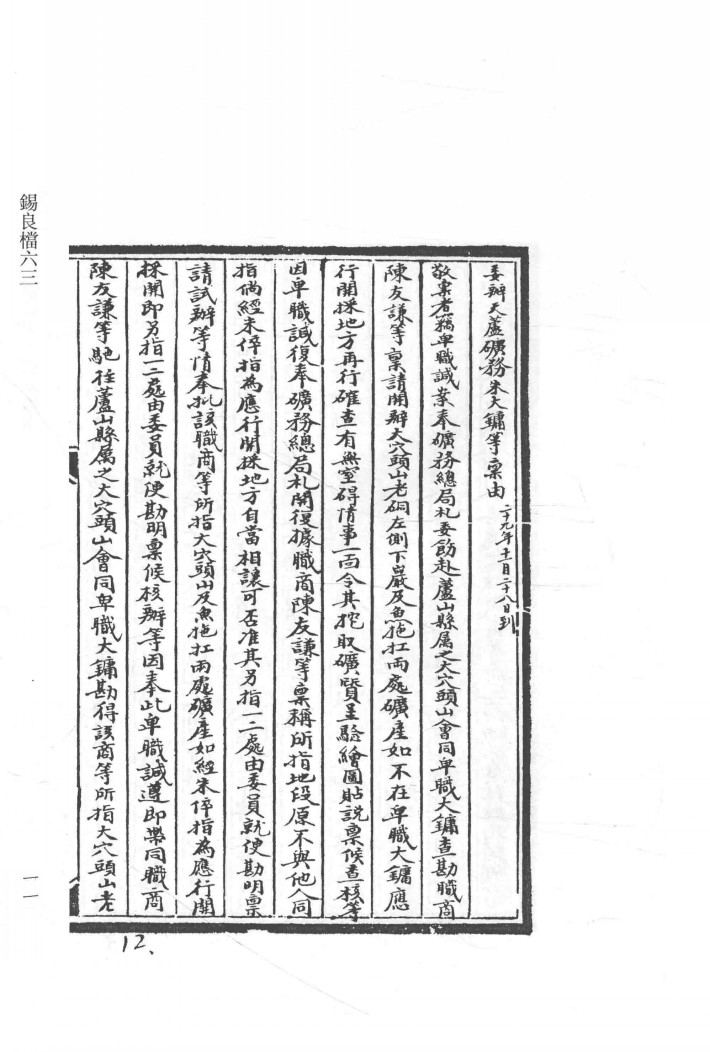 委辦天蘆礦務朱大鏞等稟由 二十九年十一月二十八日到
敬稟者竊卑職誠案奉礦務總局札委飭赴蘆山縣屬之大穴頭山會同卑職大鏞查勘職商
陳友謙等稟請開辦大穴頭山老硐左側下巖及魚拖扛兩處礦產如不在卑職大鏞應
行開採地方再行確查有無窒碍情事一面令其挖取礦質呈驗繪圖貼說稟候查核等
因卑職誠復奉礦務總局札開復據職商陳友謙等稟稱所指地段原不與他人同
指倘經朱倅指為應行開採地方自當相讓可否准其另指一二處由委員就便勘明稟
請試辦等情奉批該職商等所指大穴頭山及魚拖扛兩處礦產如經朱倅指為應行開
採開即另指一二處由委員就便勘明稟候核辦等因奉此卑職誠遵即帶同職商
陳友謙等馳往蘆山縣屬之大穴頭山會同卑職大鏞勘得該商等所指大穴頭山老
錫良檔六三
一一
12、